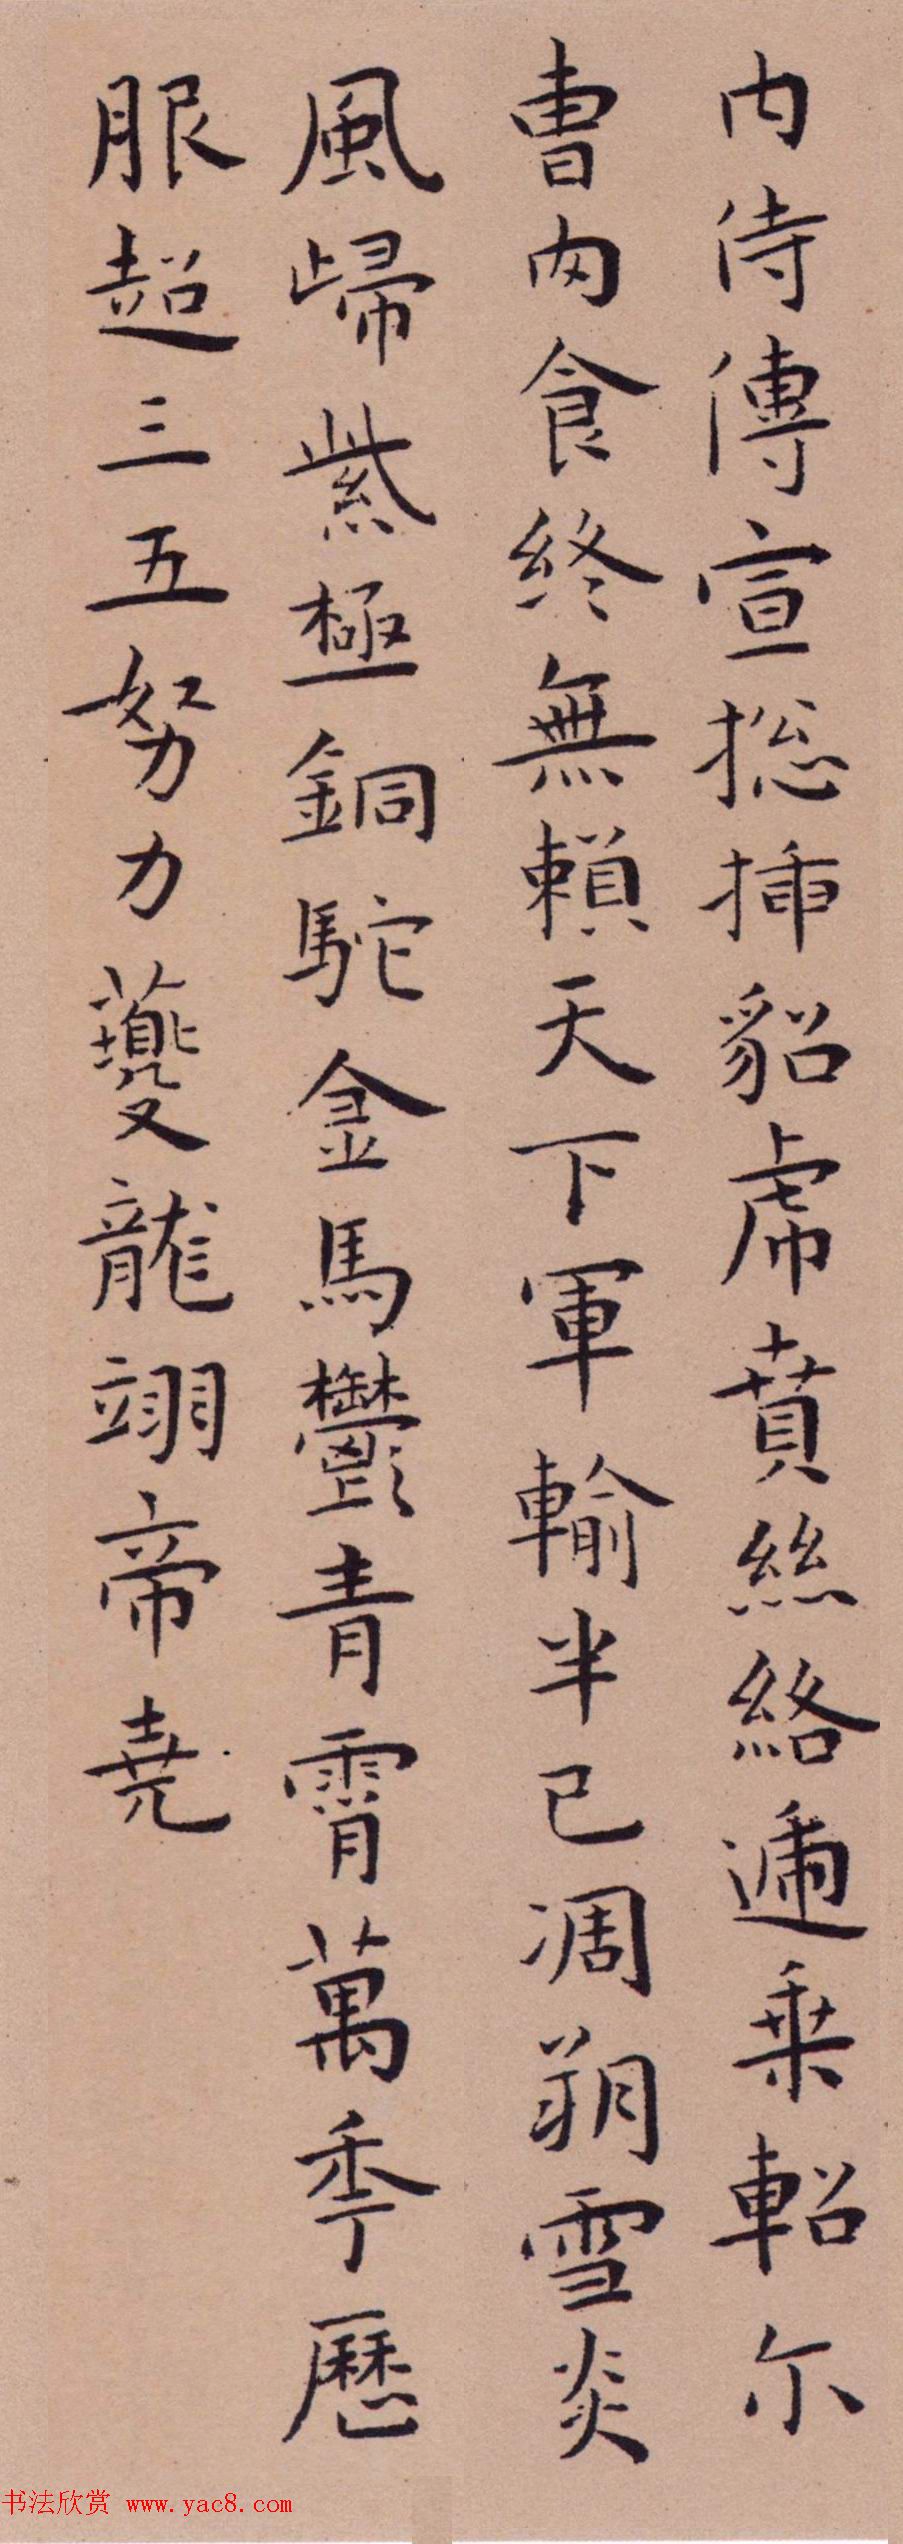 內侍傳宣摠揷貂虎賁絲絡遞乗軺尓
曹肉食終無賴天下軍輸半已凋朔雪炎
風歸紫極銅駝金馬鬱青霄萬秊歷
服超三五努力夔龍翊帝堯
书法欣赏 www.yac8.com